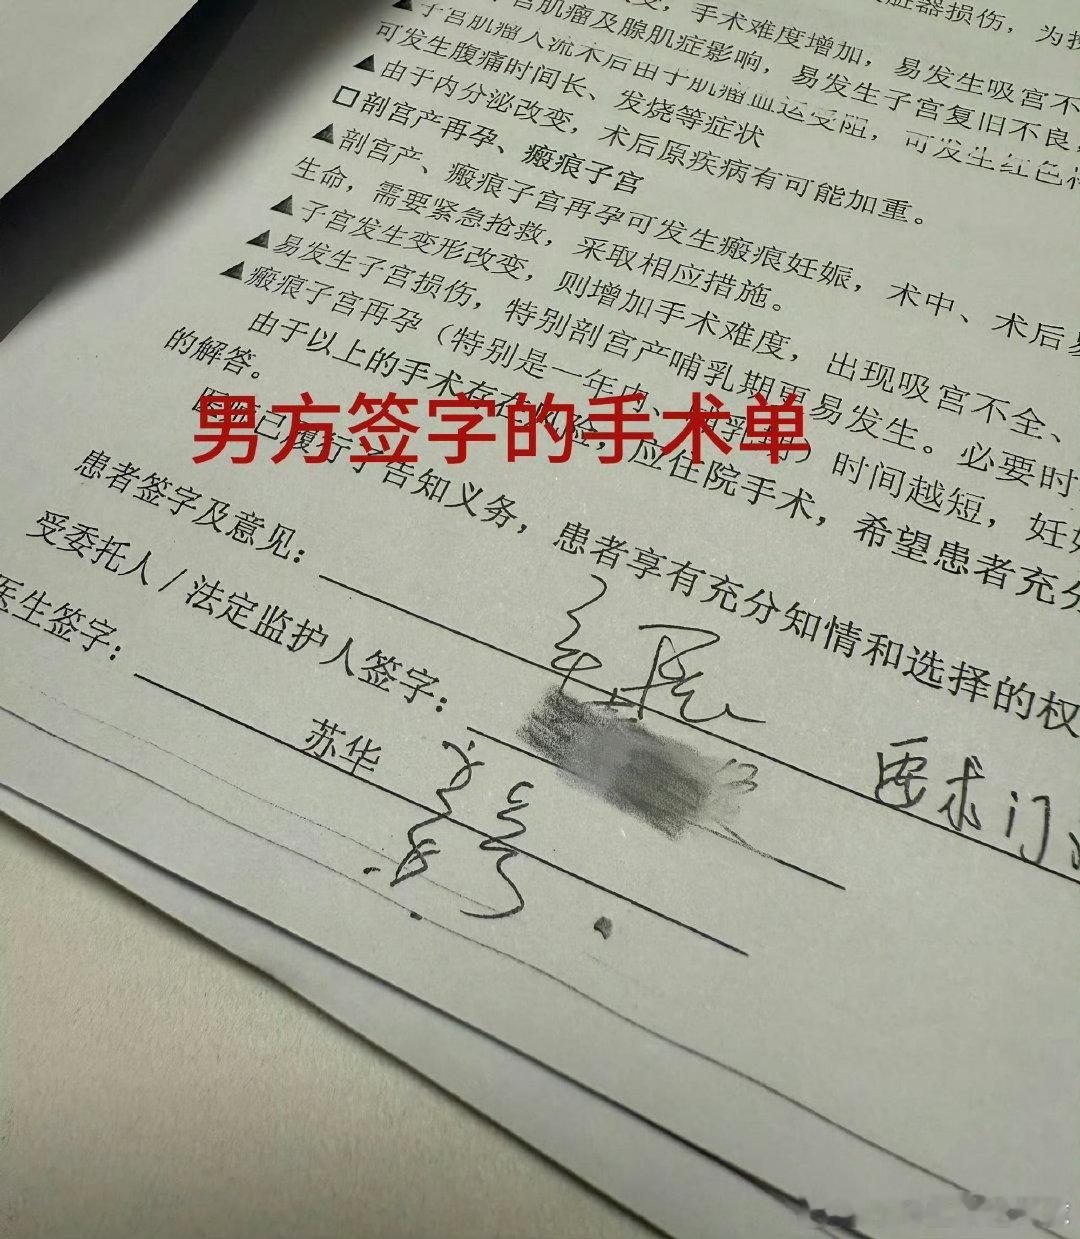 脏器损伤，为
，手术难度增加，易发生吸宫不
宫肌瘤及腺肌症影响，易发生子宫复旧不良，
▲子宫肌瘤人流术后由于肌瘤血运受阻，可发生红色
可发生腹痛时间长、发烧等症状
▲由于内分泌改变，术后原疾病有可能加重。
□剖宫产再孕、瘢痕子宫
▲剖宫产、瘢痕子宫再孕可发生瘢痕妊娠，术中、术后易
生命，需要紧急抢救，采取相应措施。
▲子宫发生变形改变，则增加手术难度，出现吸宫不全、
▲易发生子宫损伤，特别剖宫产哺乳期更易发生。必要时
▲瘢痕子宫再孕（特别是一年内、哺乳期）时间越短，妊
由于以上的手术存在风险，应住院手术，希望患者充分
的解答。
男方签字的手术单
医师已履行了告知义务，患者享有充分知情和选择的权
患者签字及意见：
要求门
受委托人/法定监护人签字：
医生签字：
苏华